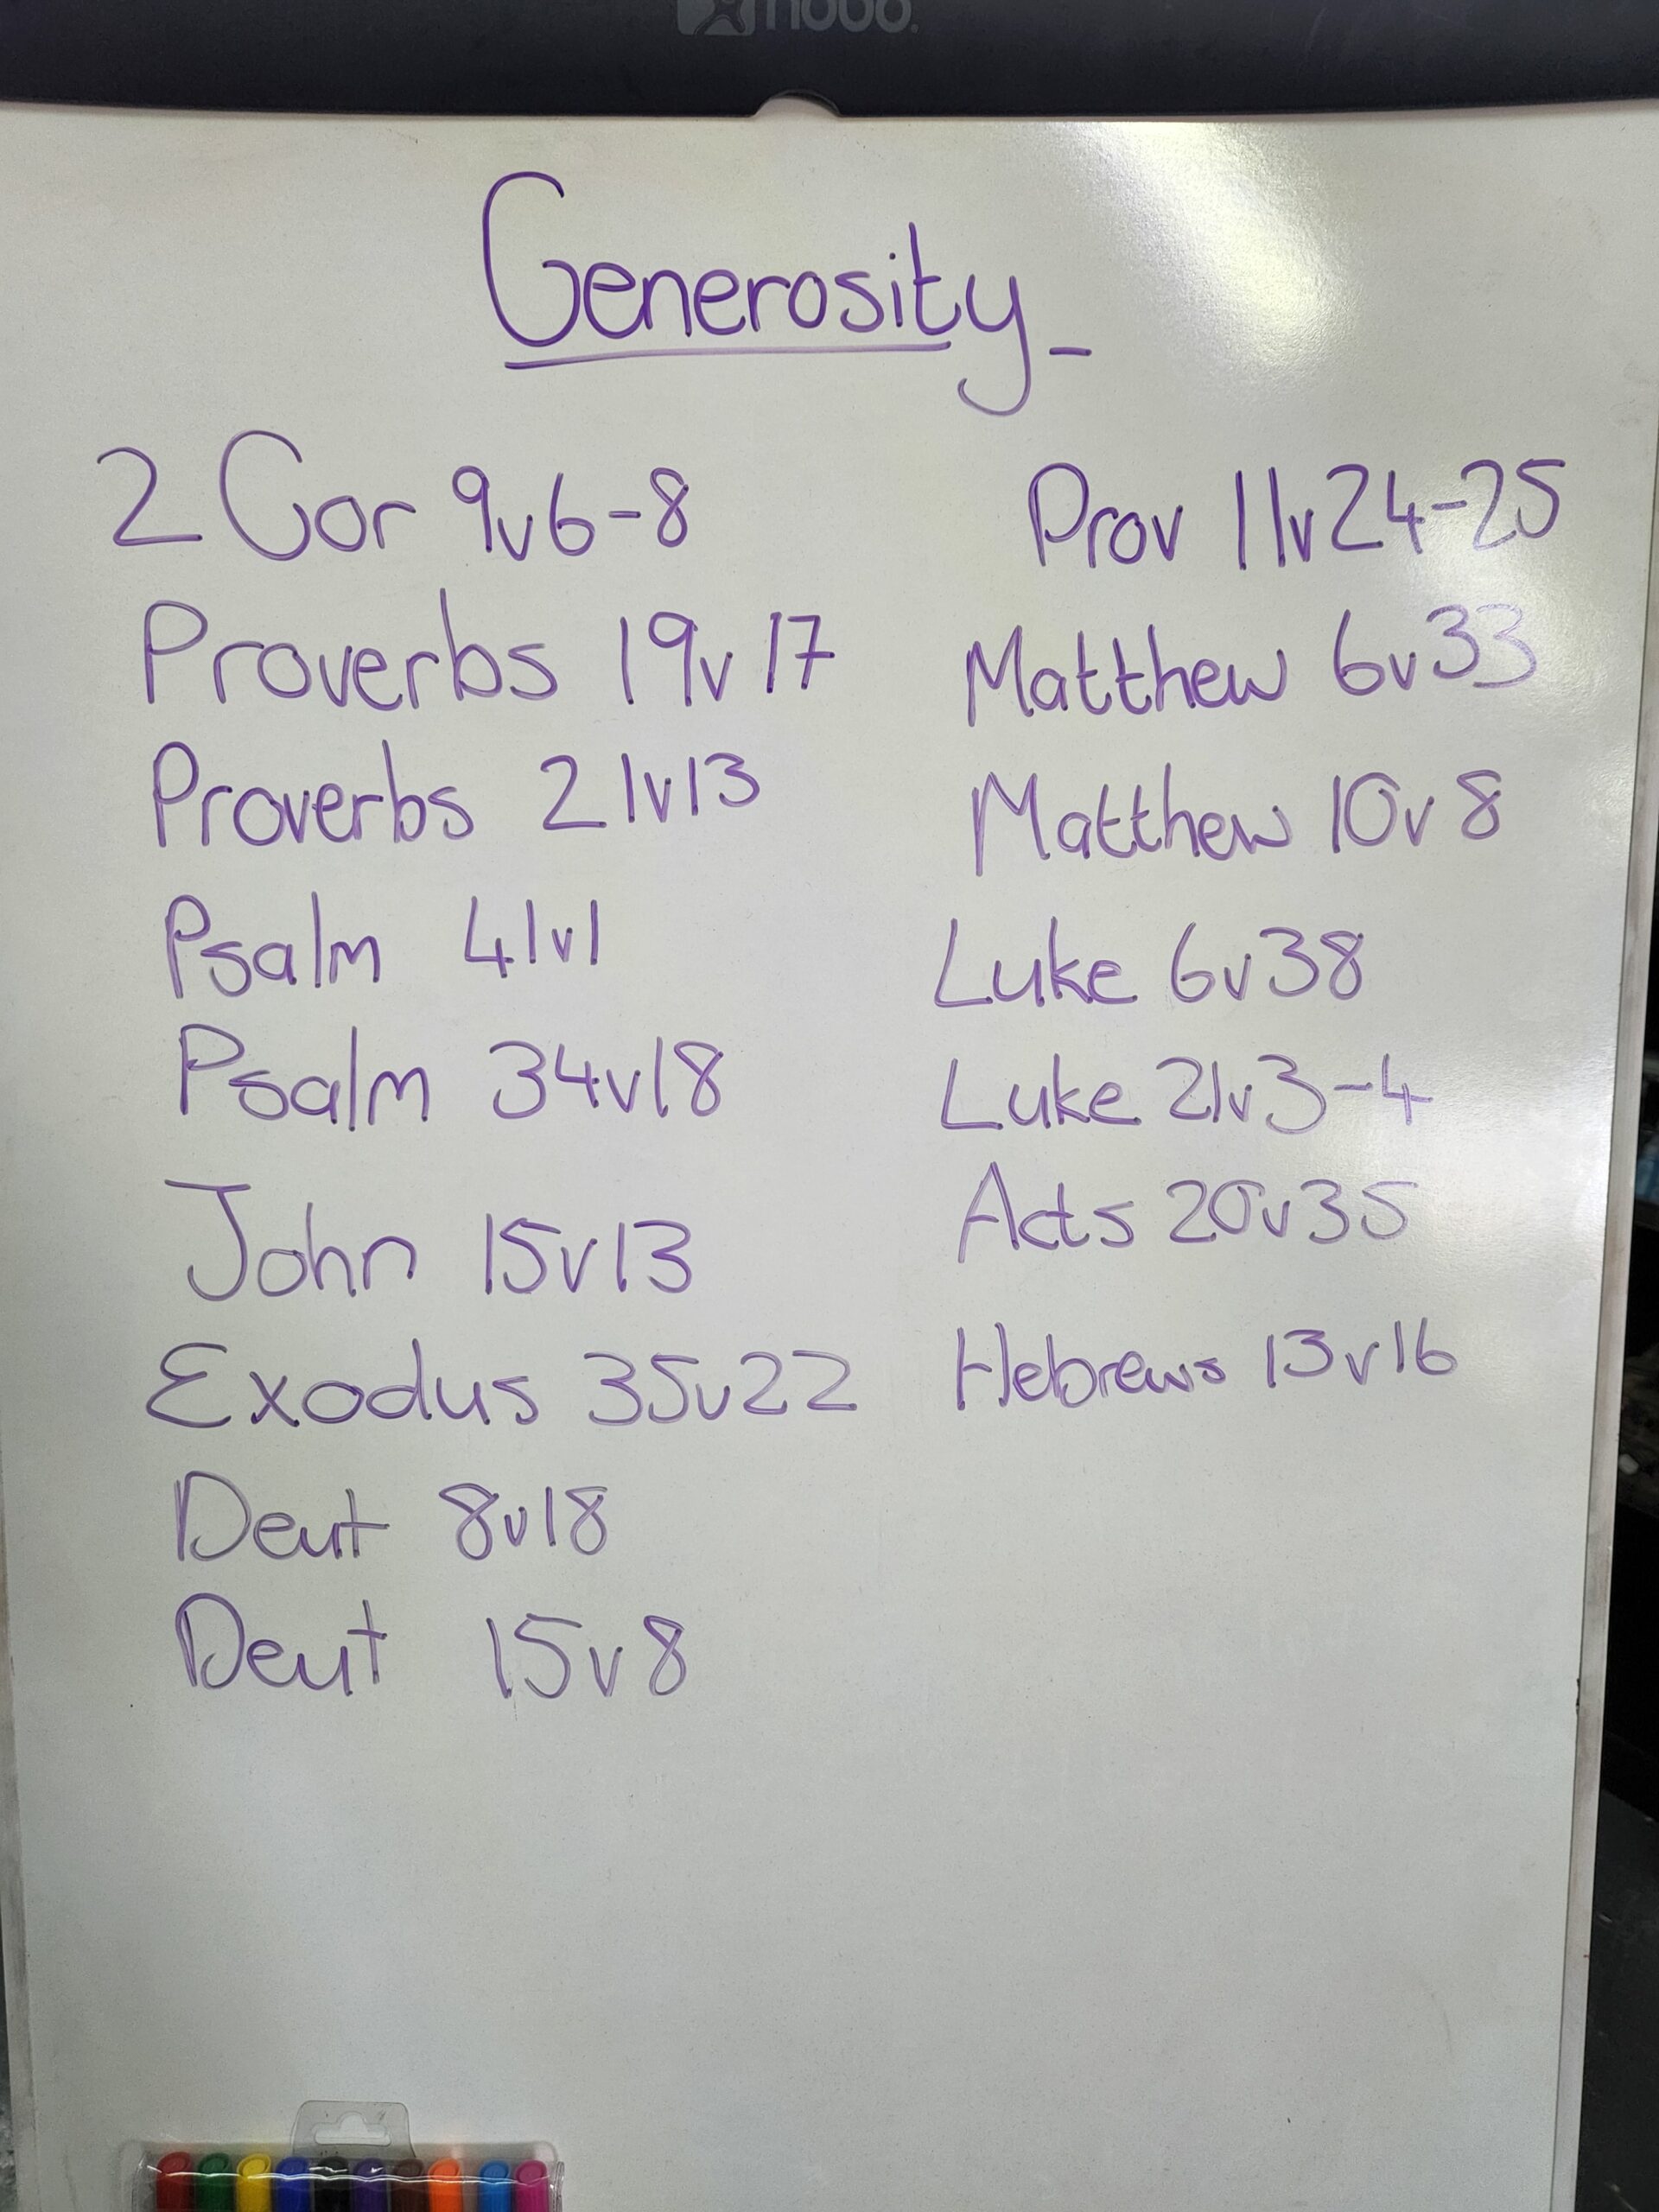 nobo.
Generosity
2 Cor 9v6-8
Proverbs 19v17
Proverbs 21v13
Psalm 41v1
Psalm 34v18
John 15v13
Exodus 35v22
Deut 8v18
Deut 15v8
Prov 11v24-25
Matthew 6v33
Matthew 10v8
Luke 6v38
Luke 21v3-4
Acts 20v35
Hebrews 13v16